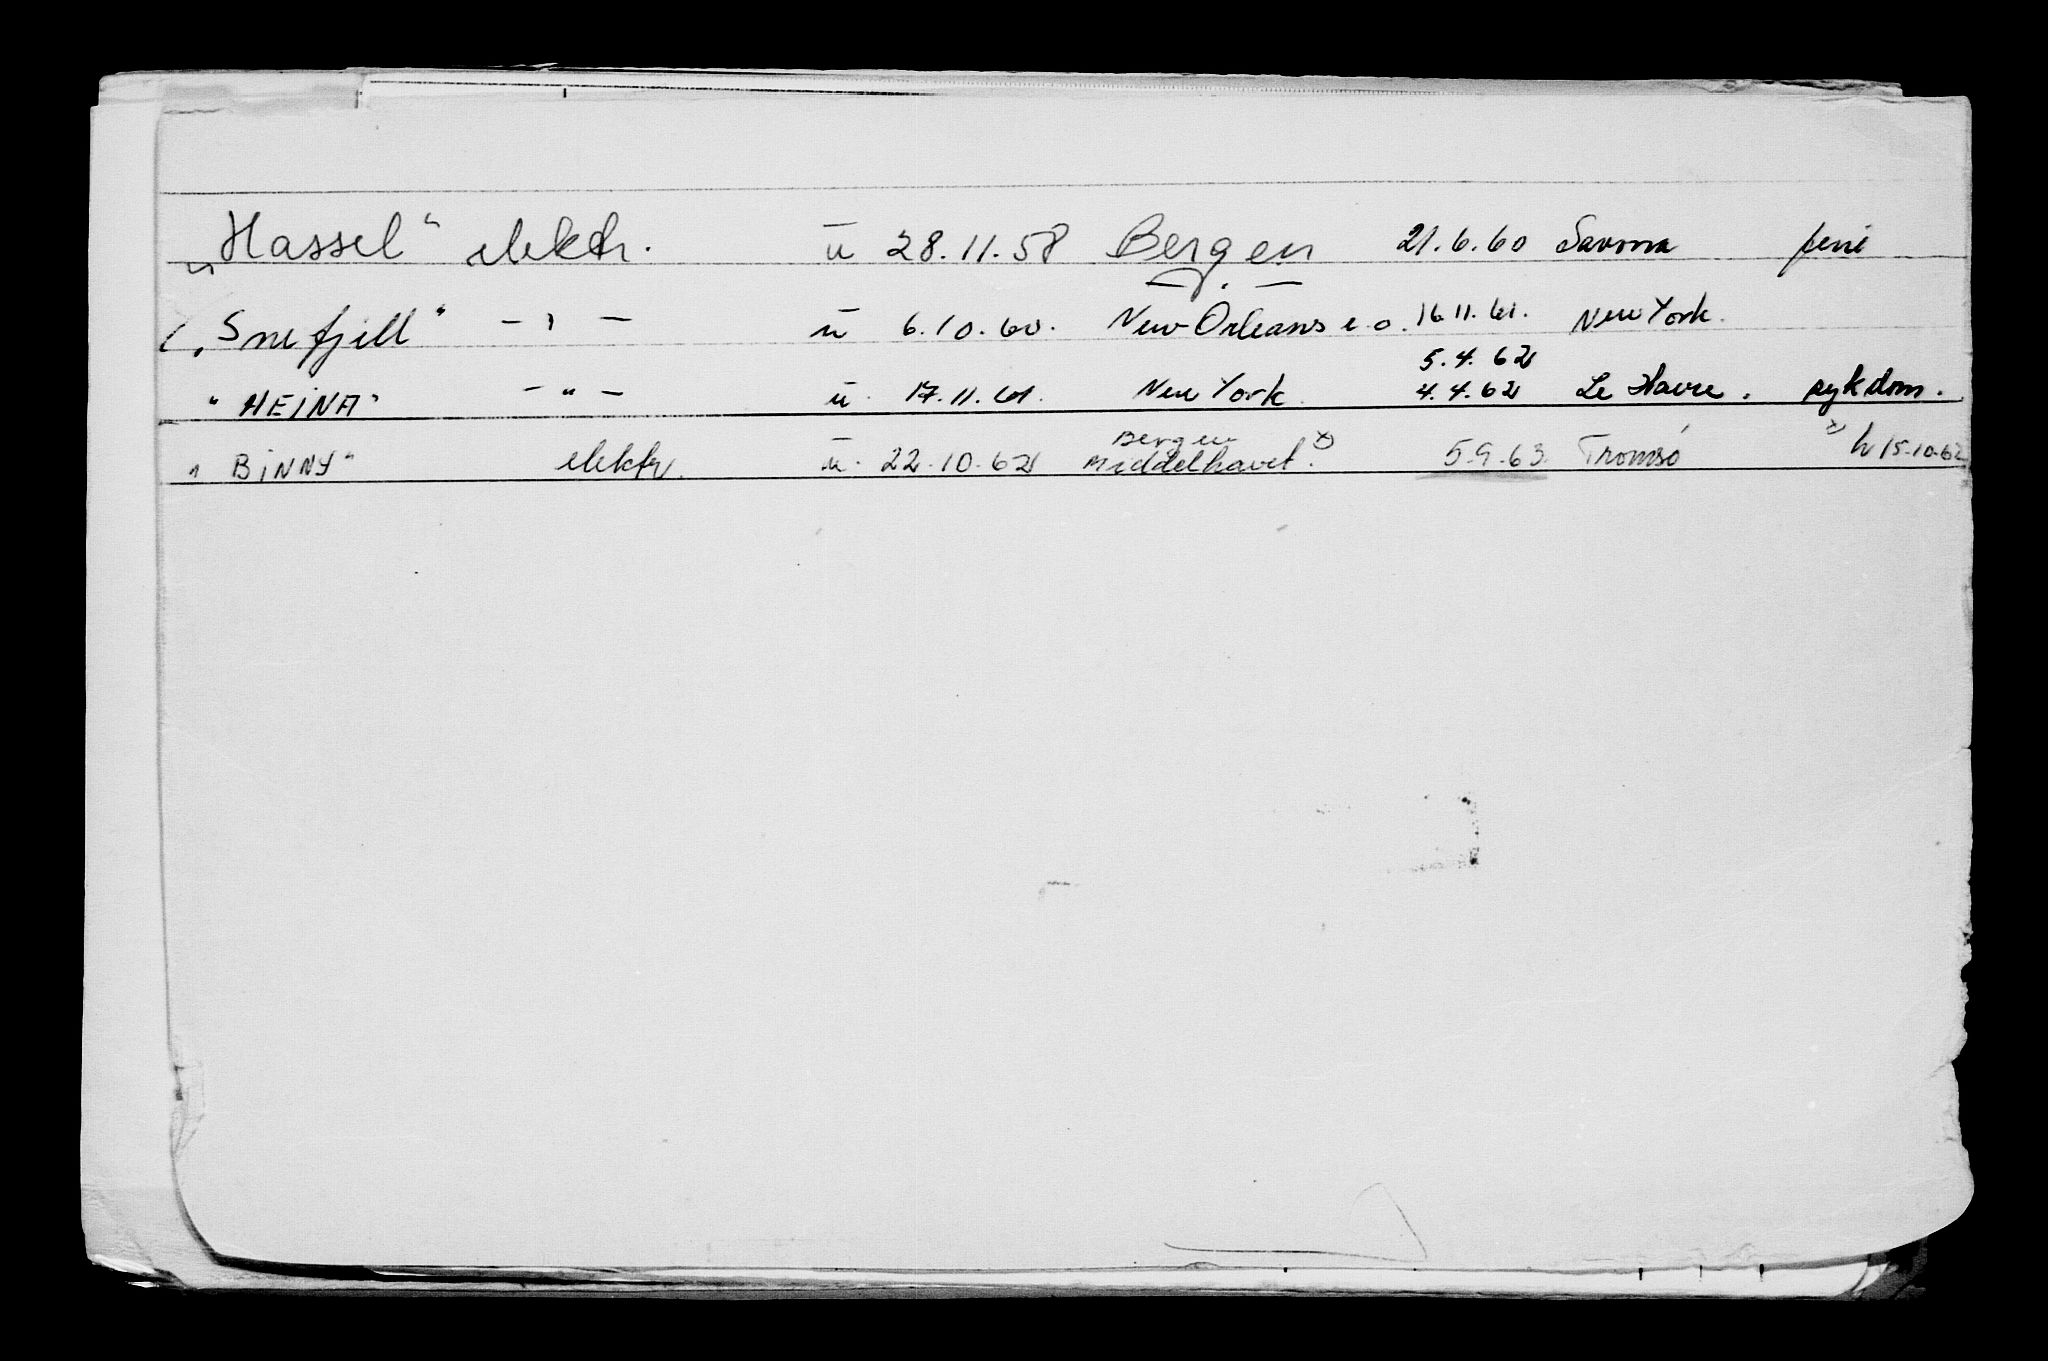 „Hassel“ elektr. u 28.11.58 Bergen 21.6.60 Savona ferie
„Snefjell“ — " — u 6.10.60. New Orleans e.o. 16.11.61. New York.
5.4.62
"HEiNA" — " — u. 17.11.61. New York. 4.4.62 Le Havre. sykdom.
Bergen
" BiNNY" elektr. u. 22.10.62 Middelhavet. x) 5.9.63. Tromsö x) h 15.10.62